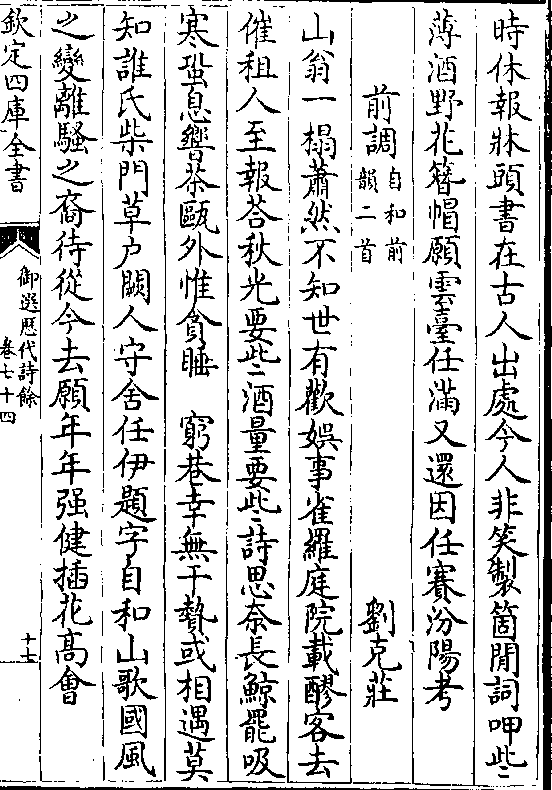 時休報牀頭書在古人出處今人非笑製箇閒詞呷些些
薄酒野花簪帽願雲臺任滿又還因任賽汾陽考
前調自和前韻二首 劉克莊
山翁一榻蕭然不知世有歡娛事雀羅庭院載醪客去
催租人至報荅秋光要些些酒量要些些詩思奈長鯨罷吸
寒蛩息響茶甌外惟貪睡 窮巷幸無干贄或相遇莫
知誰氏柴門草户闕人守舍任伊題字自和山歌國風
之變離騷之裔待從今去願年年强健插花髙會
欽定四庫全書
御選歷代詩餘
卷七十四
十七